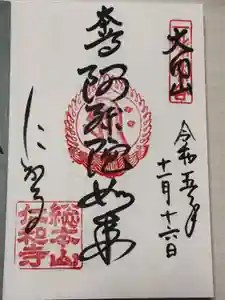 大内山
令和五年
十一月十六日
奉拝
阿弥陀如来
にわじ
総本山
仁和寺